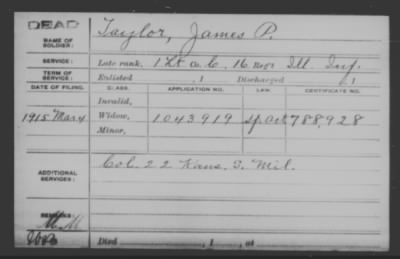 DEAD
NAME OF SOLDIER: Taylor, James P.
SERVICE: Late rank, 1 Lt Co. C, 16 Reg't Ill. Inf.
TERM OF SERVICE: Enlisted , 1 Discharged , 1
DATE OF FILING. CLASS. APPLICATION NO. LAW. CERTIFICATE NO.
Invalid,
1915 Mar 4 Widow, 1043919 Sp. Act 788,928
Minor,
ADDITIONAL SERVICES: Col. 22 Kans. S. Mil.
REMARKS:
Died , 1 , at